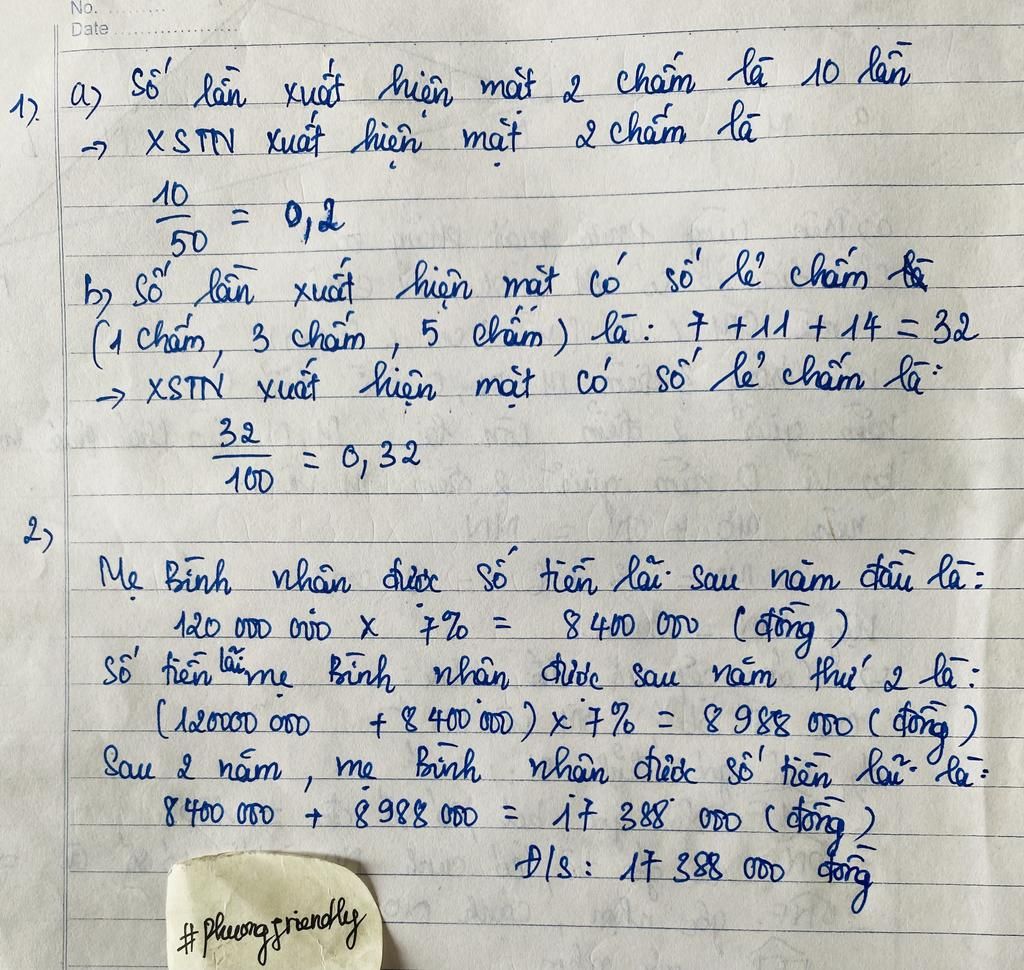 No. ............
Date ....................
1). a) Số lần xuất hiện mặt 2 chấm là 10 lần
→ XSTN xuất hiện mặt 2 chấm là
10/50 = 0,2
b) Số lần xuất hiện mặt có số lẻ chấm là
(1 chấm, 3 chấm, 5 chấm) là: 7 + 11 + 14 = 32
→ XSTN xuất hiện mặt có số lẻ chấm là:
32/100 = 0,32
2)
Mẹ Bình nhận được số tiền lãi sau năm đầu là:
120 000 000 x 7% = 8 400 000 (đồng)
Số tiền lãi mẹ Bình nhận được sau năm thứ 2 là:
(120000 000 + 8 400 000) x 7% = 8 988 000 (đồng)
Sau 2 năm, mẹ Bình nhận được số tiền lãi là:
8 400 000 + 8 988 000 = 17 388 000 (đồng)
Đ/S: 17 388 000 đồng
#phuongfriendly